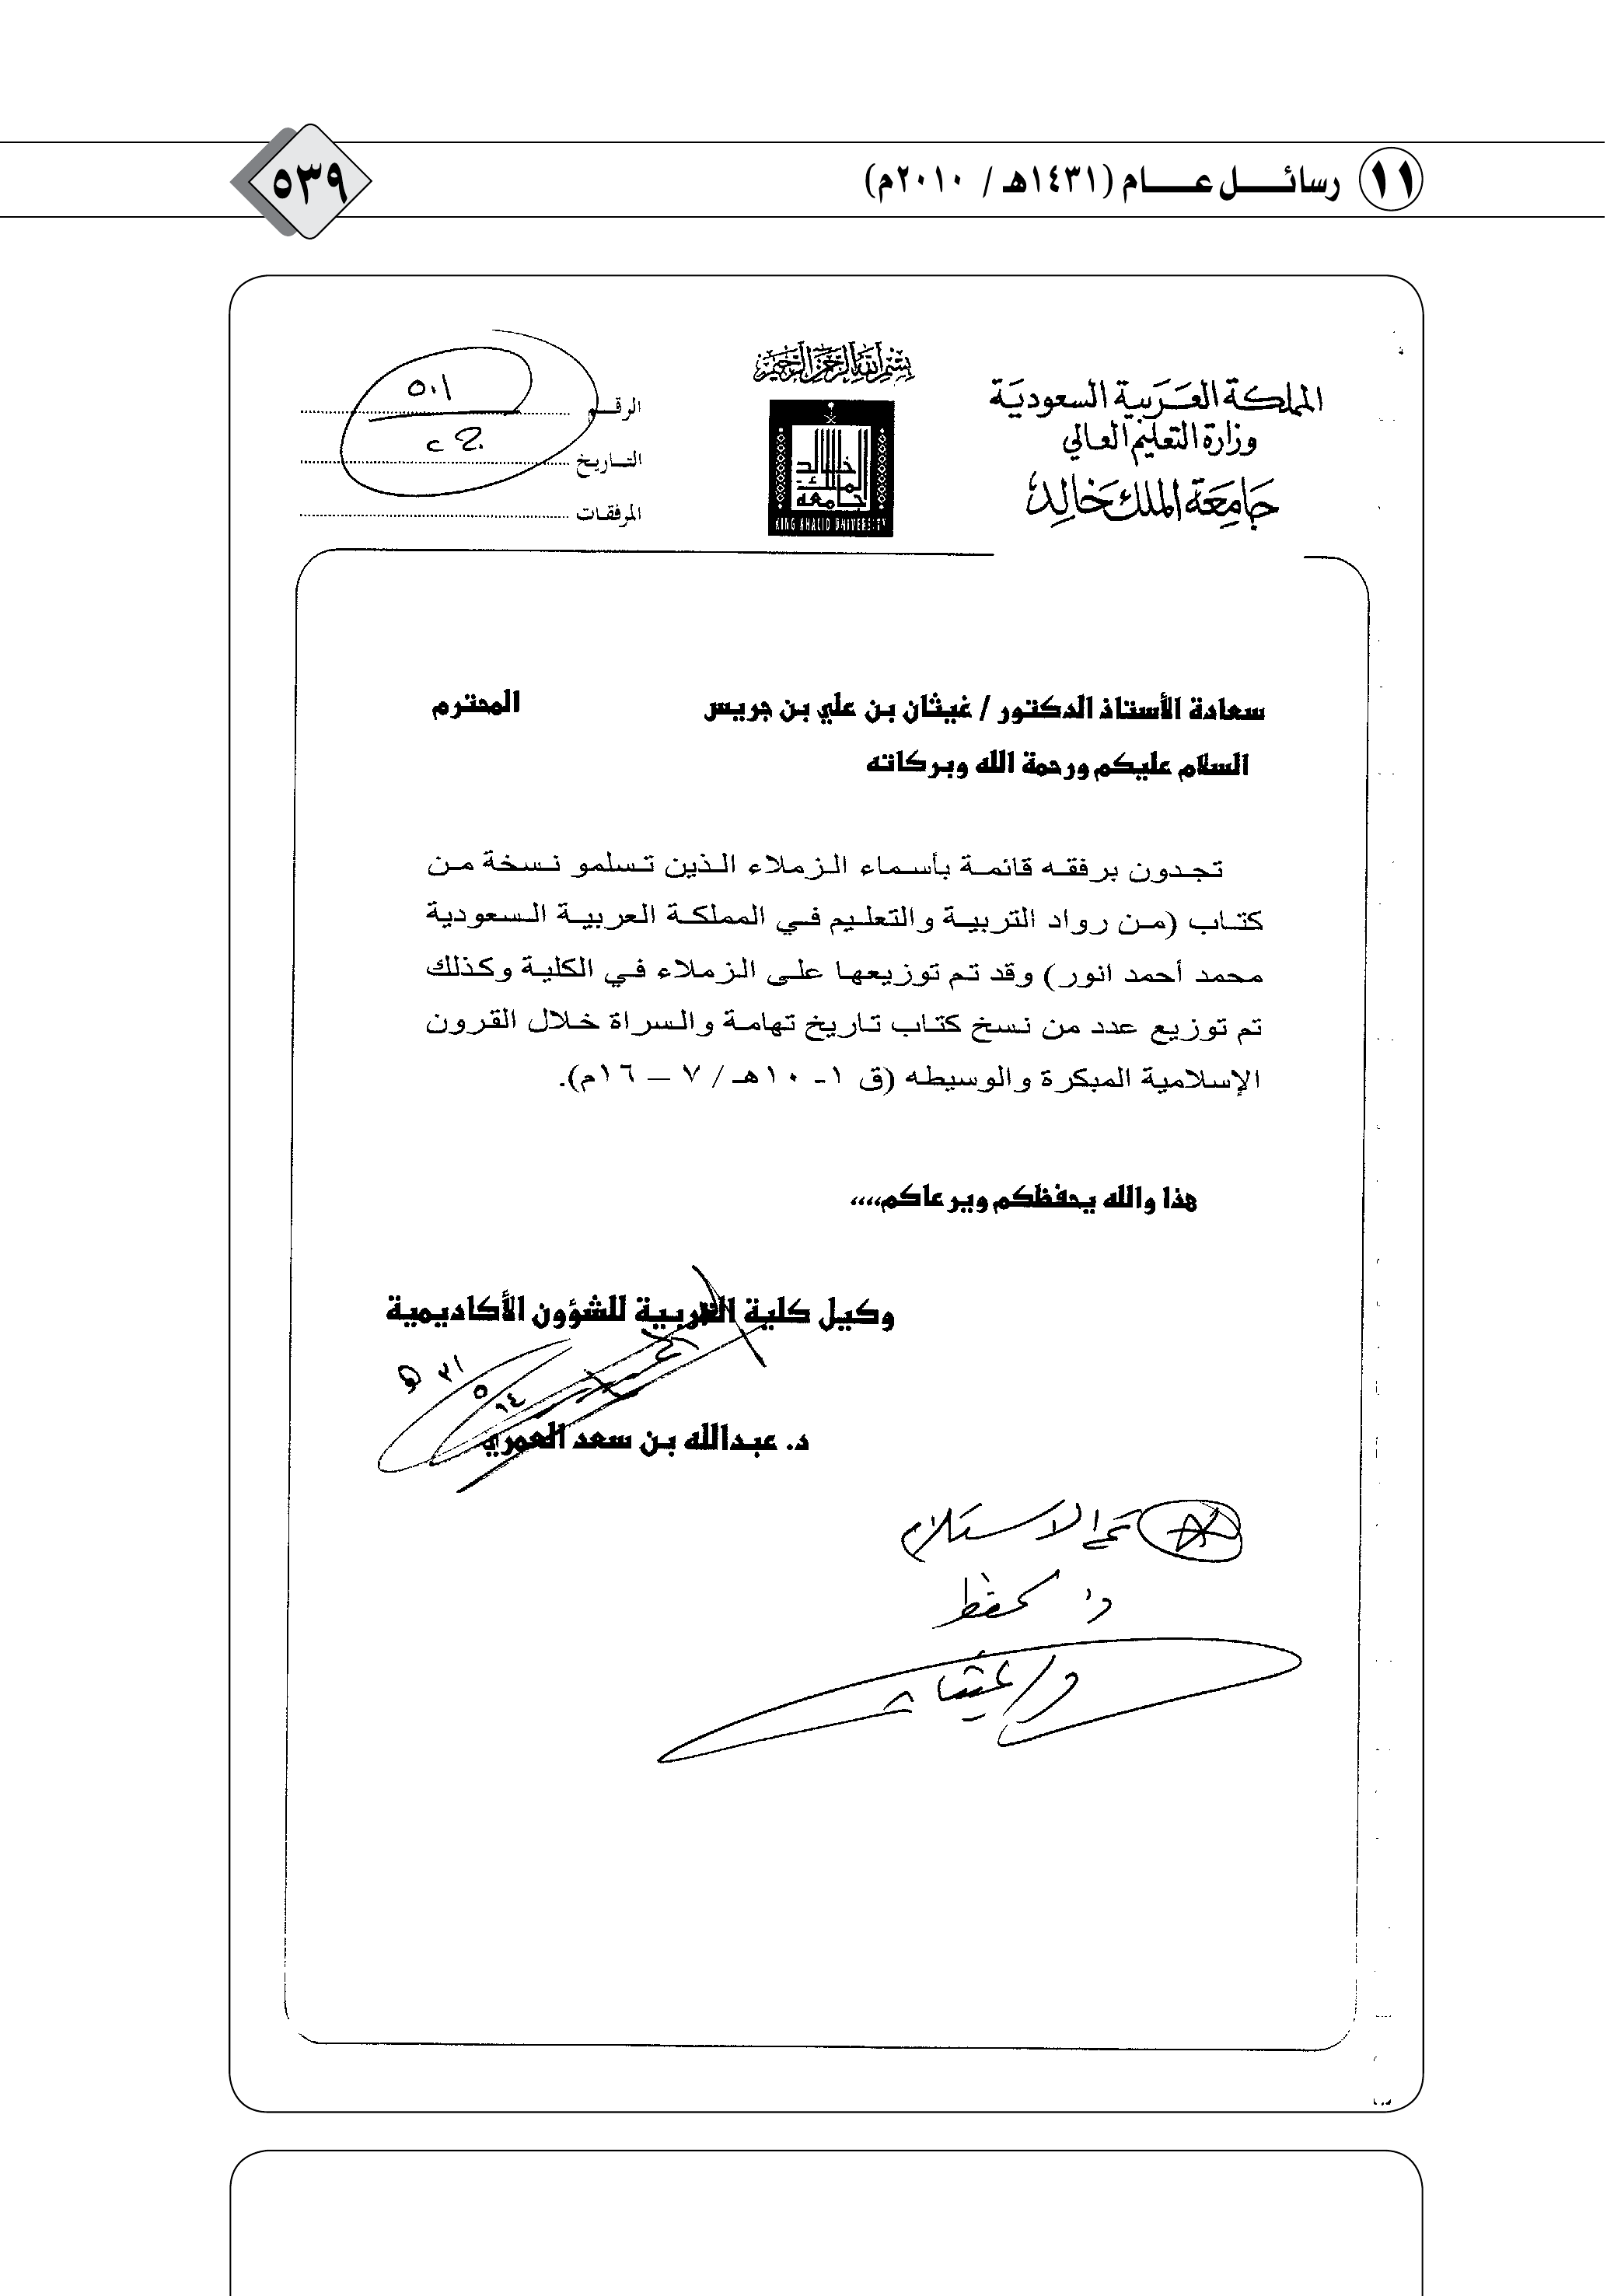 ١١ رسائل عام (١٤٣١هـ / ٢٠١٠م)
٥٣٩
بسم الله الرحمن الرحيم
المملكة العربية السعودية
وزارة التعليم العالي
جامعة الملك خالد
جامعة الملك خالد
KING KHALID UNIVERSITY
الرقم
التاريخ
المرفقات
سعادة الأستاذ الدكتور / غيثان بن علي بن جريس المحترم
السلام عليكم ورحمة الله وبركاته
تجدون برفقه قائمة بأسماء الزملاء الذين تسلمو نسخة من
كتاب (من رواد التربية والتعليم في المملكة العربية السعودية
محمد أحمد انور) وقد تم توزيعها على الزملاء في الكلية وكذلك
تم توزيع عدد من نسخ كتاب تاريخ تهامة والسراة خلال القرون
الإسلامية المبكرة والوسيطه (ق ١- ١٠هـ / ٧ – ١٦م).
هذا والله يحفظكم ويرعاكم،،،،
وكيل كلية التربية للشؤون الأكاديمية
د. عبدالله بن سعد العمري
الاستلام